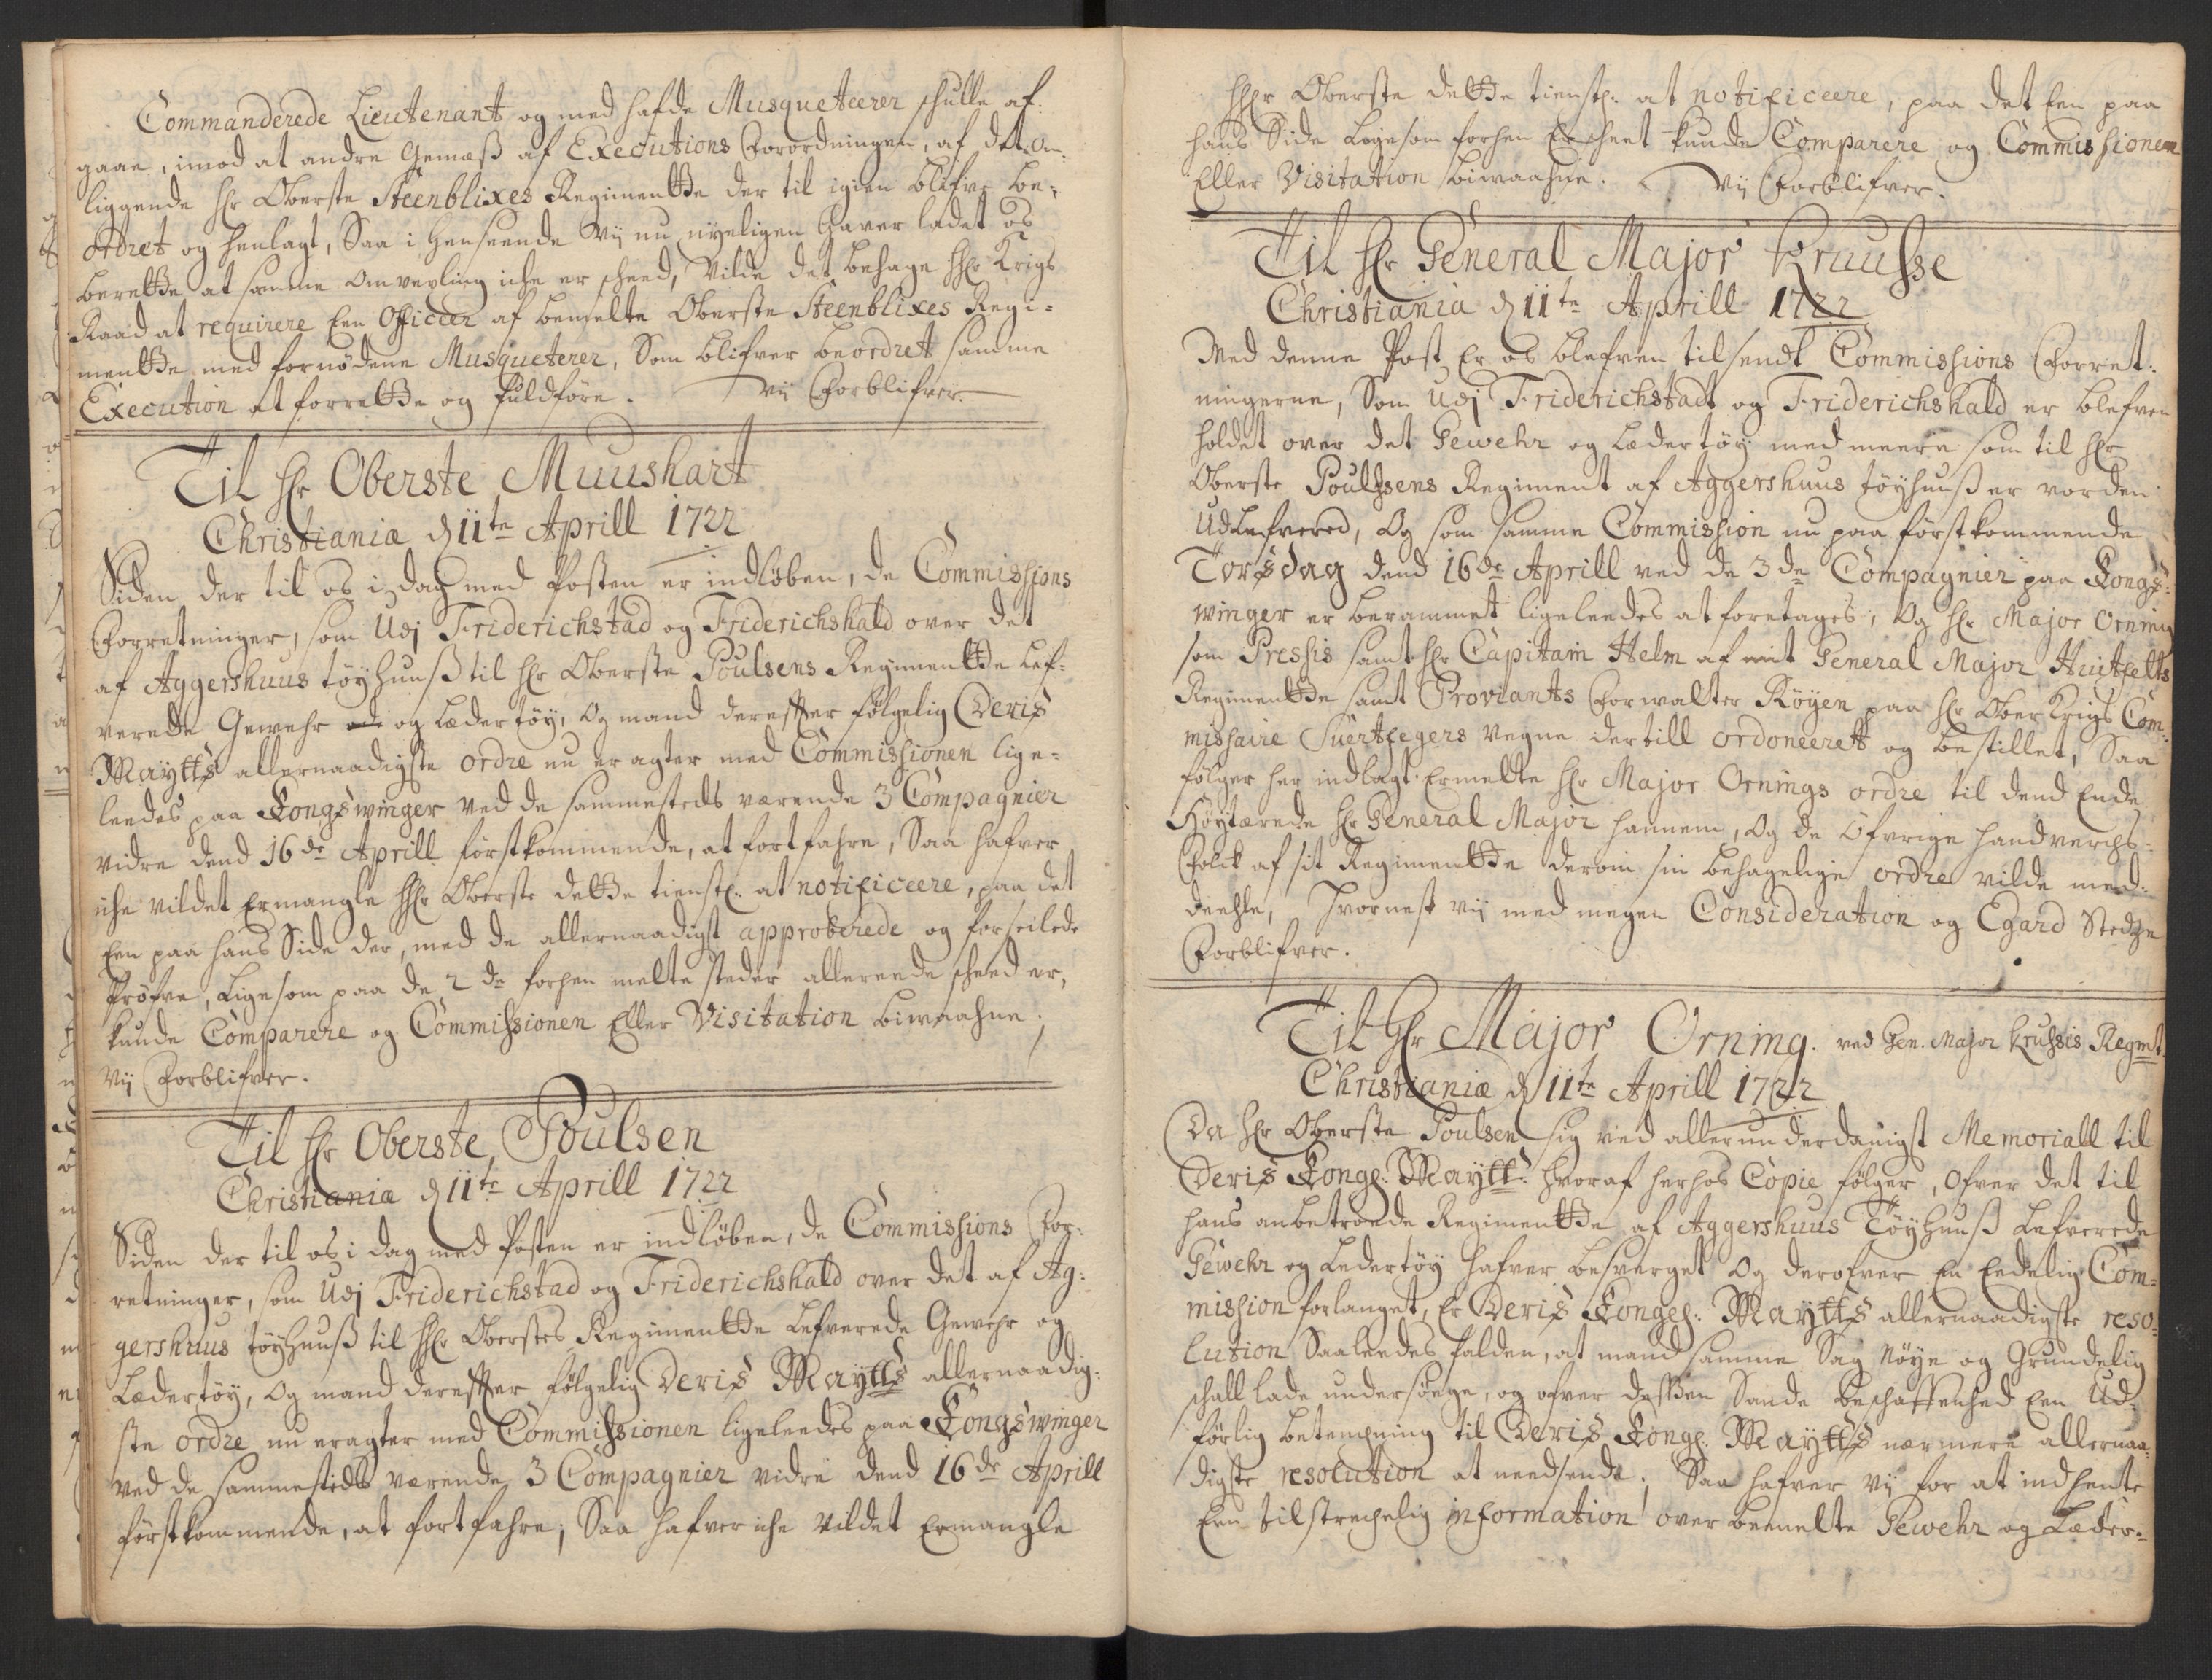 Commanderede Lieutenant og med hafde Musqueteerer schulle af¬
gaae, imod at andre Gemæß af Executions Forordningen, af det om¬
liggende Hr Oberste Steenblixes Regimentte der til igien blifve be¬
ordret og henlagt, Saa i henseende Vij nu nyeligen haver ladet os
berette at samme omvexling iche er scheed, Vilde det behage HHr Krigs
Raad at requirere Een Officeer af bemelte Oberste Steenblixes Regi¬
mentte med fornødene Musqueterer, Som blifver beordret samme
Execution at forrette og fuldføre. Vij Forblifver.
Til Hr Oberste Muushart
Christiania d 11te Aprill 1722
Siden der til os i dag med Posten er indløben, de Commissions
Forretninger, som Udj Friderichstad og Friderichshald over det
af Aggershuus tøyhuuß til Hr Oberste Poulsens Regimentte Lef¬
verede Gewehr og Lædertøy, Og mand derefter følgelig Deris
Maytts allernaadigste ordre nu er agter med Commissionen lige¬
leedes paa Kongswinger ved de sammesteds værende 3 Compagnier
vidre dend 16de Aprill førstkommende, at fortfahre, Saa hafver
iche vildet Ermangle HHr Oberste dette tienstl. at notificeere, paa det
Een paa hans Side der, med de allernaadigst approberede og forseilede
Prøfve, Ligesom paa de 2de forhen melte steder allereede scheed er,
kunde Comparere og Commissionen Eller Visitation biwaahne.
Vij Forblifver.
Til Hr Oberste Poulsen
Christiania d 11te Aprill 1722
Siden der til os i dag med Posten er indløben, de Commissions For¬
retninger, som Udj Friderichstad og Friderichshald over det af Ag¬
gershuus tøyhuuß til HHr Oberstes Regimentte Lefverede Gewehr og
Lædertøy, Og mand derefter følgelig Deris Maytts allernaadig¬
ste ordre nu eragter med Commissionen ligeleedes paa Kongswinger
ved de sammesteds værende 3 Compagnier vidre dend 16de Aprill
førstkommende, at fortfahre; Saa hafver iche vildet Ermangle
HHr Oberste dette tienstl. at notificeere, paa det Een paa
hans Side Ligesom forhen Er scheet kunde Comparere og Commissionen
Eller Visitation biwaahne. Vij Forblifver.
Til Hr General Major Kruusse
Christiania d 11te Aprill 1722
Med denne Post Er os blefven tilsendt Commissions Forret¬
ningerne, Som Udj Friderichstadt og Friderichshald er blefven
holdet over det Gewehr og Lædertøy med meere som til Hr
Oberste Poulssens Regiment af Aggershuus tøyhuuß er vorden
Udlefvered, Og som samme Commission nu paa førstkommende
Torsdag dend 16de Aprill ved de 3de Compagnier paa Kongs¬
winger er berammet ligeleedes at foretages, Og Hr Major Orning
som Pressis samt Hr Capitain Helm af General Major Huitfelts
Regimentte samt Proviants Forwalter Røyen paa Hr Ober Krigs Com¬
missaire Suertfegers vegne dertill ordoneeret og bestillet, Saa
følger her indlagt Ermelte Hr Major Ornings ordre til dend Ende
Høytærede Hr General Major hannem, Og de øfvrige handverchs¬
Folck af sit Regimentte derom sin behagelige ordre vilde med¬
deehle, Hvornest vij med megen Consideration og Egard Stedze
Forblifver.
Til Hr Major Orning. ved Gen. Major Krusis Regmt
Christiania d 11te Aprill 1722
Da Hr Oberste Poulsen sig ved allerunderdanigst Memoriall til
Deris Kongl: Maytt: hvoraf herhos Copie følger, Ofver det til
hans anbetroede Regimentte af Aggershuus Tøyhuuß Lefverede
Gewehr og Ledertøy hafver besverget Og derofver En Eedelig Com¬
mission forlanget, Er Deris Kongel: Maytts allernaadigste reso¬
lution Saaleedes falden, at mand samme Sag nøye og Grundelig
schall lade undersøege, og ofver dessen Sande beschaffenhed Een Ud¬
førlig betenchning til Deris Kongl. Maytts nærmere allernaa¬
digste resolution at needsende. Saa hafver vij for at indhente
Een tilstrechelig information over bemelte Gewehr og Læder¬